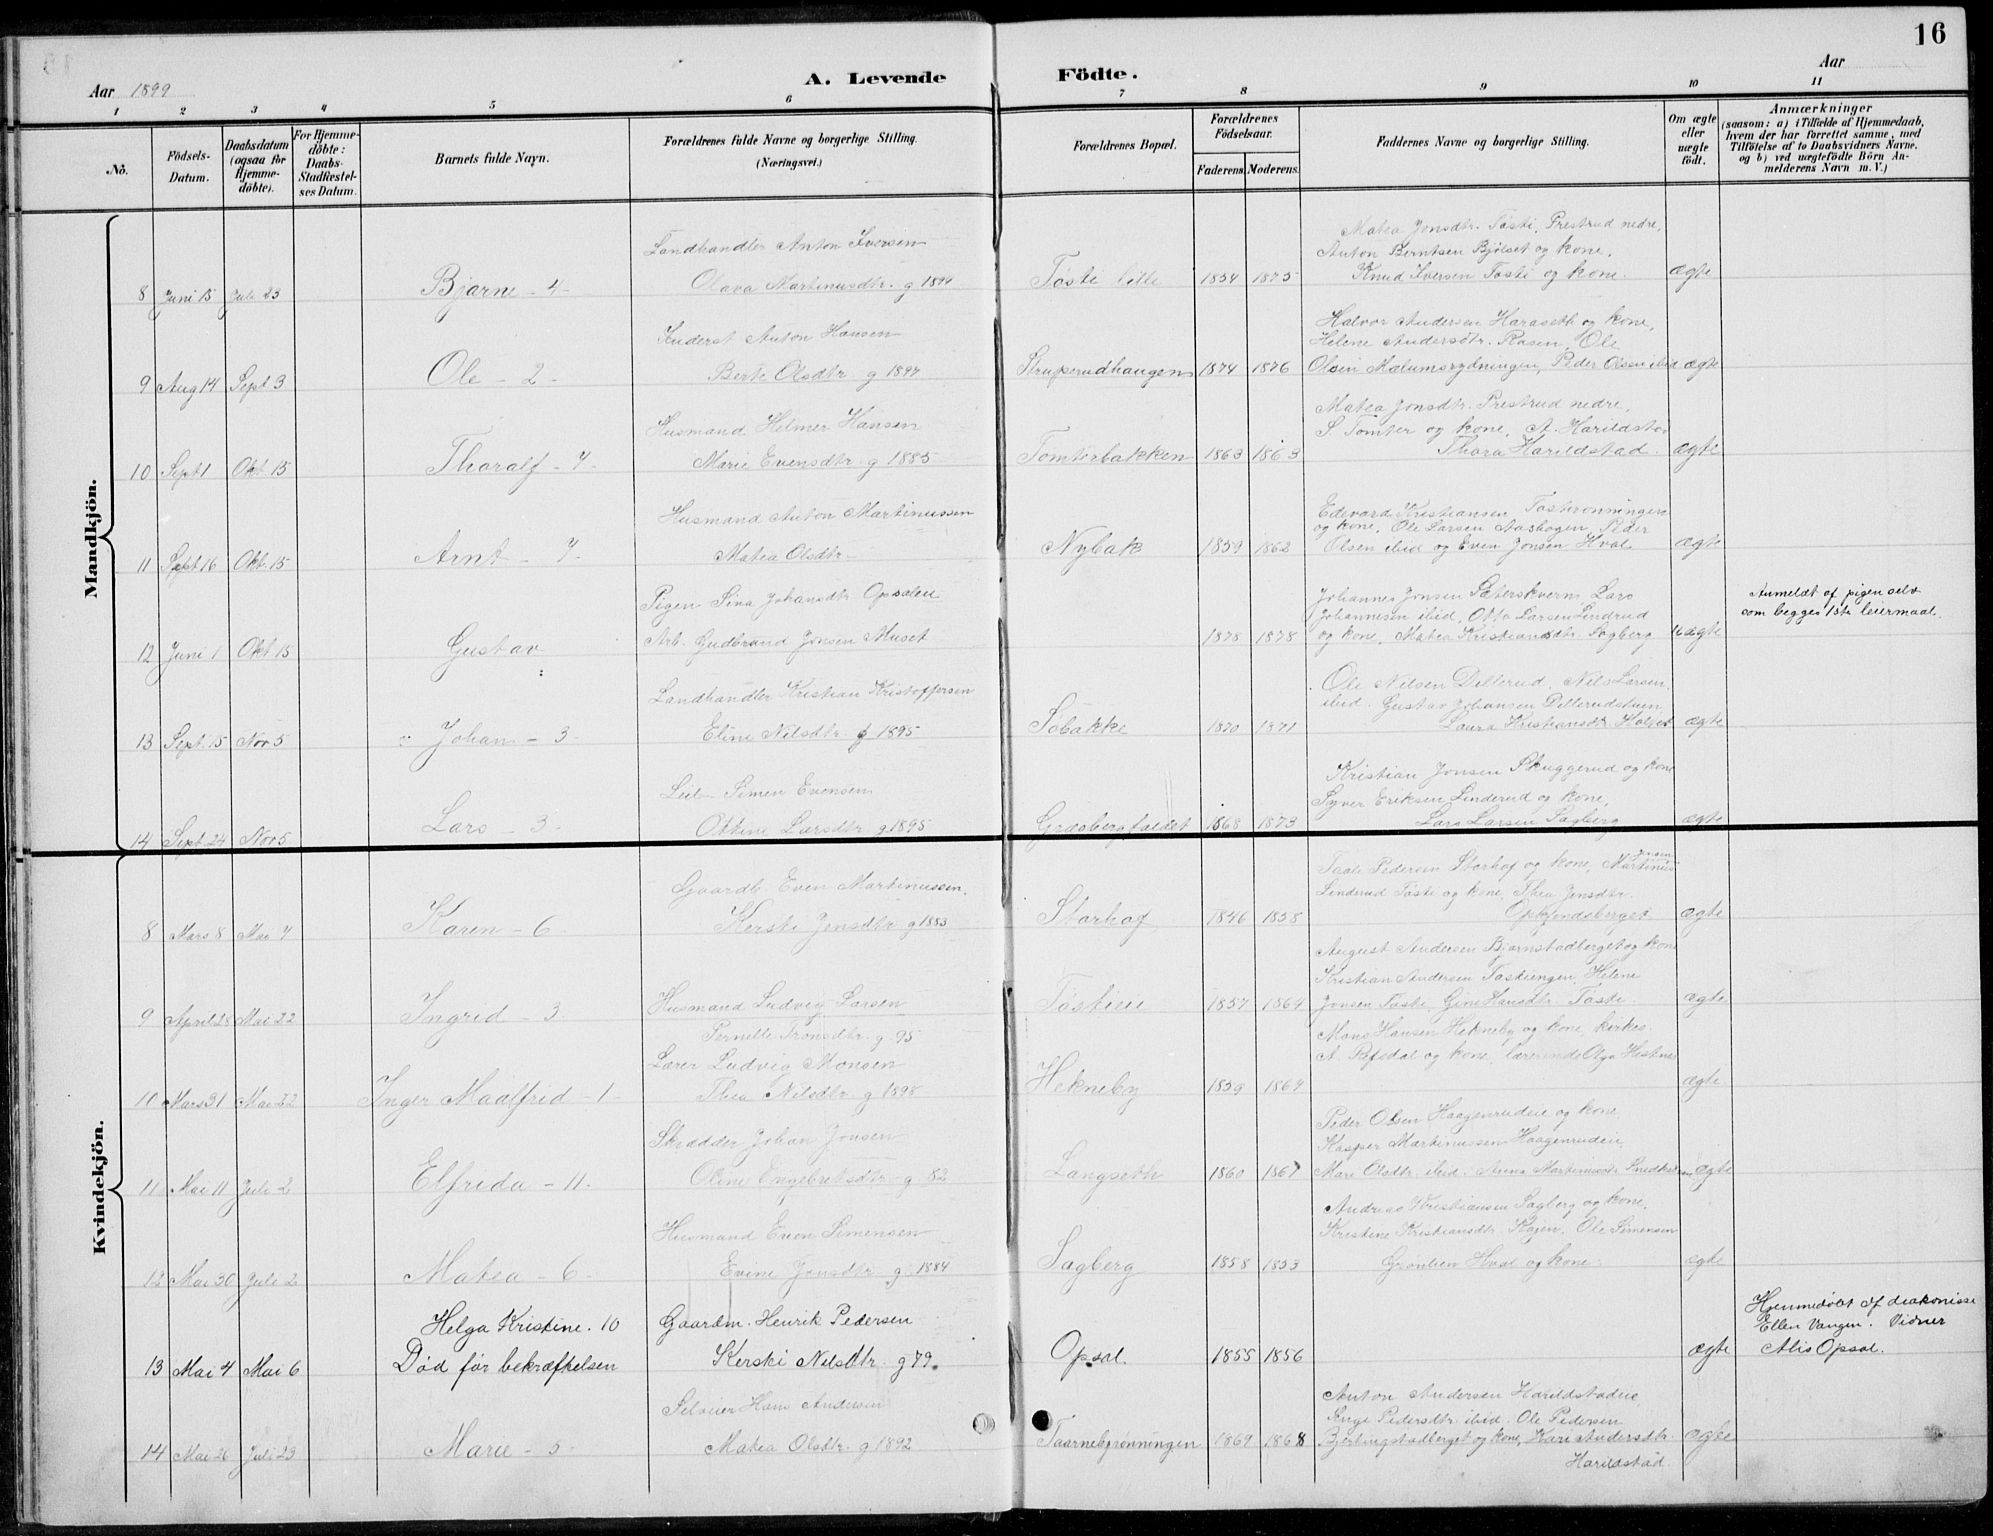 16
A. Levende Födte.
Aar 1899
Aar
1 2 3 4 5 6 7 8 9 10 11
No.
Födsels-Datum.
Daabsdatum (ogsaa for Hjemmedöbte).
For Hjemmedöbte: Daabs-Stadfæstelses Datum.
Barnets fulde Navn.
Forældrenes fulde Navne og borgerlige Stilling. (Næringsvei.)
Forældrenes Bopæl.
Forældrenes Födselsaar.
Faderens. Moderens.
Faddernes Navne og borgerlige Stilling.
Om ægte eller uægte födt.
Anmærkninger
(saasom: a) i Tilfælde af Hjemmedaab, hvem der har forrettet samme, med Tilföielse af to Daabsvidners Navne. og b) ved uægtefödte Börn Anmelderens Navn m. V.)
Mandkjön.
Landhandler Anton Iversen
8 Juni 15 Juli 23 Bjarne - 4 - Olava Martinusdtr. g 1894 Tøste lille 1854 1875
Matea Jonsdtr. Tøste, Prestrud nedre,
Anton Berntsen Bjølset og kone,
Knud Iversen Tøste og kone. ægte
Inderst Anton Hansen
9 Aug 14 Sept 3 Ole - 2 - Berte Olsdtr g 1897 Struperudhaugen 1874 1876
Halvor Andersen Haraseth og kone,
Helene Andersdtr. Rosen, Ole
Olsen Malumsrydningen, Peder Olsen ibid ægte
Husmand Helmer Hansen
10 Sept 1 Okt. 15 Thoralf - 7 - Marie Evensdtr. g 1885 Tomterbakken 1863 1863
Matea Jonsdtr. Prestrud nedre,
S. Tomter og kone, A. Harildstad
Thora Harildstad. ægte
Husmand Anton Martinussen
11 Sept 16 Okt. 15 Arnt - 7 Matea Olsdtr Nybak 1859 1862
Edevard Kristiansen Tøsterønningen
og kone, Ole Larsen Aashagen, Peder
Olsen ibid og Even Jonsen Hval ægte
Pigen Sina Johansdtr. Opsalen
Arb. Gudbrand Jonsen Muset
12 Juni 1 Okt 15 Gustav 1878 1878
Johannes Jonsen Sæterskvern, Lars
Johannesen ibid, Otto Larsen Linderud
og kone, Matea Kristiansdtr. Sagberg uægte
Anmeldt af pigen selv
som begges 1ste leiermaal.
Landhandler Kristian Kristoffersen
13 Sept. 15 Nov 5 Johan - 3 - Eline Nilsdtr. g 1895 Søbakke 1870 1871
Ole Nilsen Dillerud, Nils Larsen
ibid. Gustav Johansen Dillerudstuen
Laura Kristiansdtr. ægte
Simen Evensen
14 Sept. 24 Nov 5 Lars - 3 - Oline Larsdtr g 1895 1868 1873
Kristian Jonsen Skuggerud og kone
Syver Eriksen Linderud og kone,
Lars Larsen Sagberg ægte
Kvindekjön.
Gaardb. Even Martinussen.
8 Mars 8 Mai 7 Karen - 6 Kersti Jensdtr g 1883 Storhaf 1846 1858
Taale Pedersen Storhaf og kone, Martinus Jensen
Linderud Tøste og kone, Thea Jensdtr.
ægte
Husmand Ludvig Larsen
9 April 28 Mai 22 Ingrid - 3 Pernille Tronsdtr. g 95 Tøsteie 1857 1869
August Andersen Bjørnstadberget og kone
Kristian Andersen Tøsteengen, Helene
Jonsen Tøste, Gina Hansdtr. Tøste. ægte
Lærer Ludvig Monsen
10 Mars 31 Mai 22 Inger Maalfrid - 1 - Thea Nilsdtr. g 1898 Hekneby 1859 1869
Mons Hansen Hekneby og kone, kirkes.
A. Refsdal og kone, lærerinde Olga Hestnes
ægte
Skrædder Johan Jonsen
11 Mai 11 Juli 2 Elfrida - 11 - Oline Engebretsdtr g 82 Langseth 1860 1861
Peder Olsen Haagenrudeie og kone,
Kasper Martinussen Haagenrudeie,
Mari Olsdtr. ibid. Anna Martinusdtr. ægte
Husmand Even Simensen
12 Mai 30 Juli 2 Matea - 6 - Evine Jonsdtr g 1884 Sagberg 1858 1853
Andreas Kristiansen Sagberg og kone,
Kristine Kristiansdtr. Ole Simensen
Grønlien Hval og kone. ægte
Helga Kristine. 10 Gaardm. Henrik Pedersen
13 Mai 4 Mai 6 Død før bekræftelsen Kersti Nilsdtr. g 79. Opsal. 1855 1856 ægte
Hjemmedøbt af diakonisse
Ellen Vangen. Vidner
Alis Opsal.
Selveier Hans Andersen
14 Mai 26 Juli 23 Marie - 5 - Matea Olsdtr. g 1892 Taarnebyrønningen 1869 1868
Anton Andersen Harildstadeie,
Inge Pedersdtr. ibid. Ole Pedersen
Bjerkingstadberget og kone, Kari Andersdtr. ægte
Harildstad.